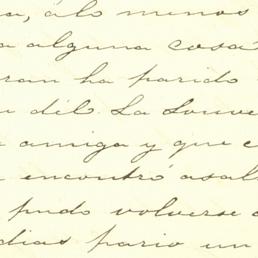 a, á lo menos
a alguna cosa
ran ha parido
dél. La Louve
amiga y que
encontró asal
pudo volverse
dias pario un